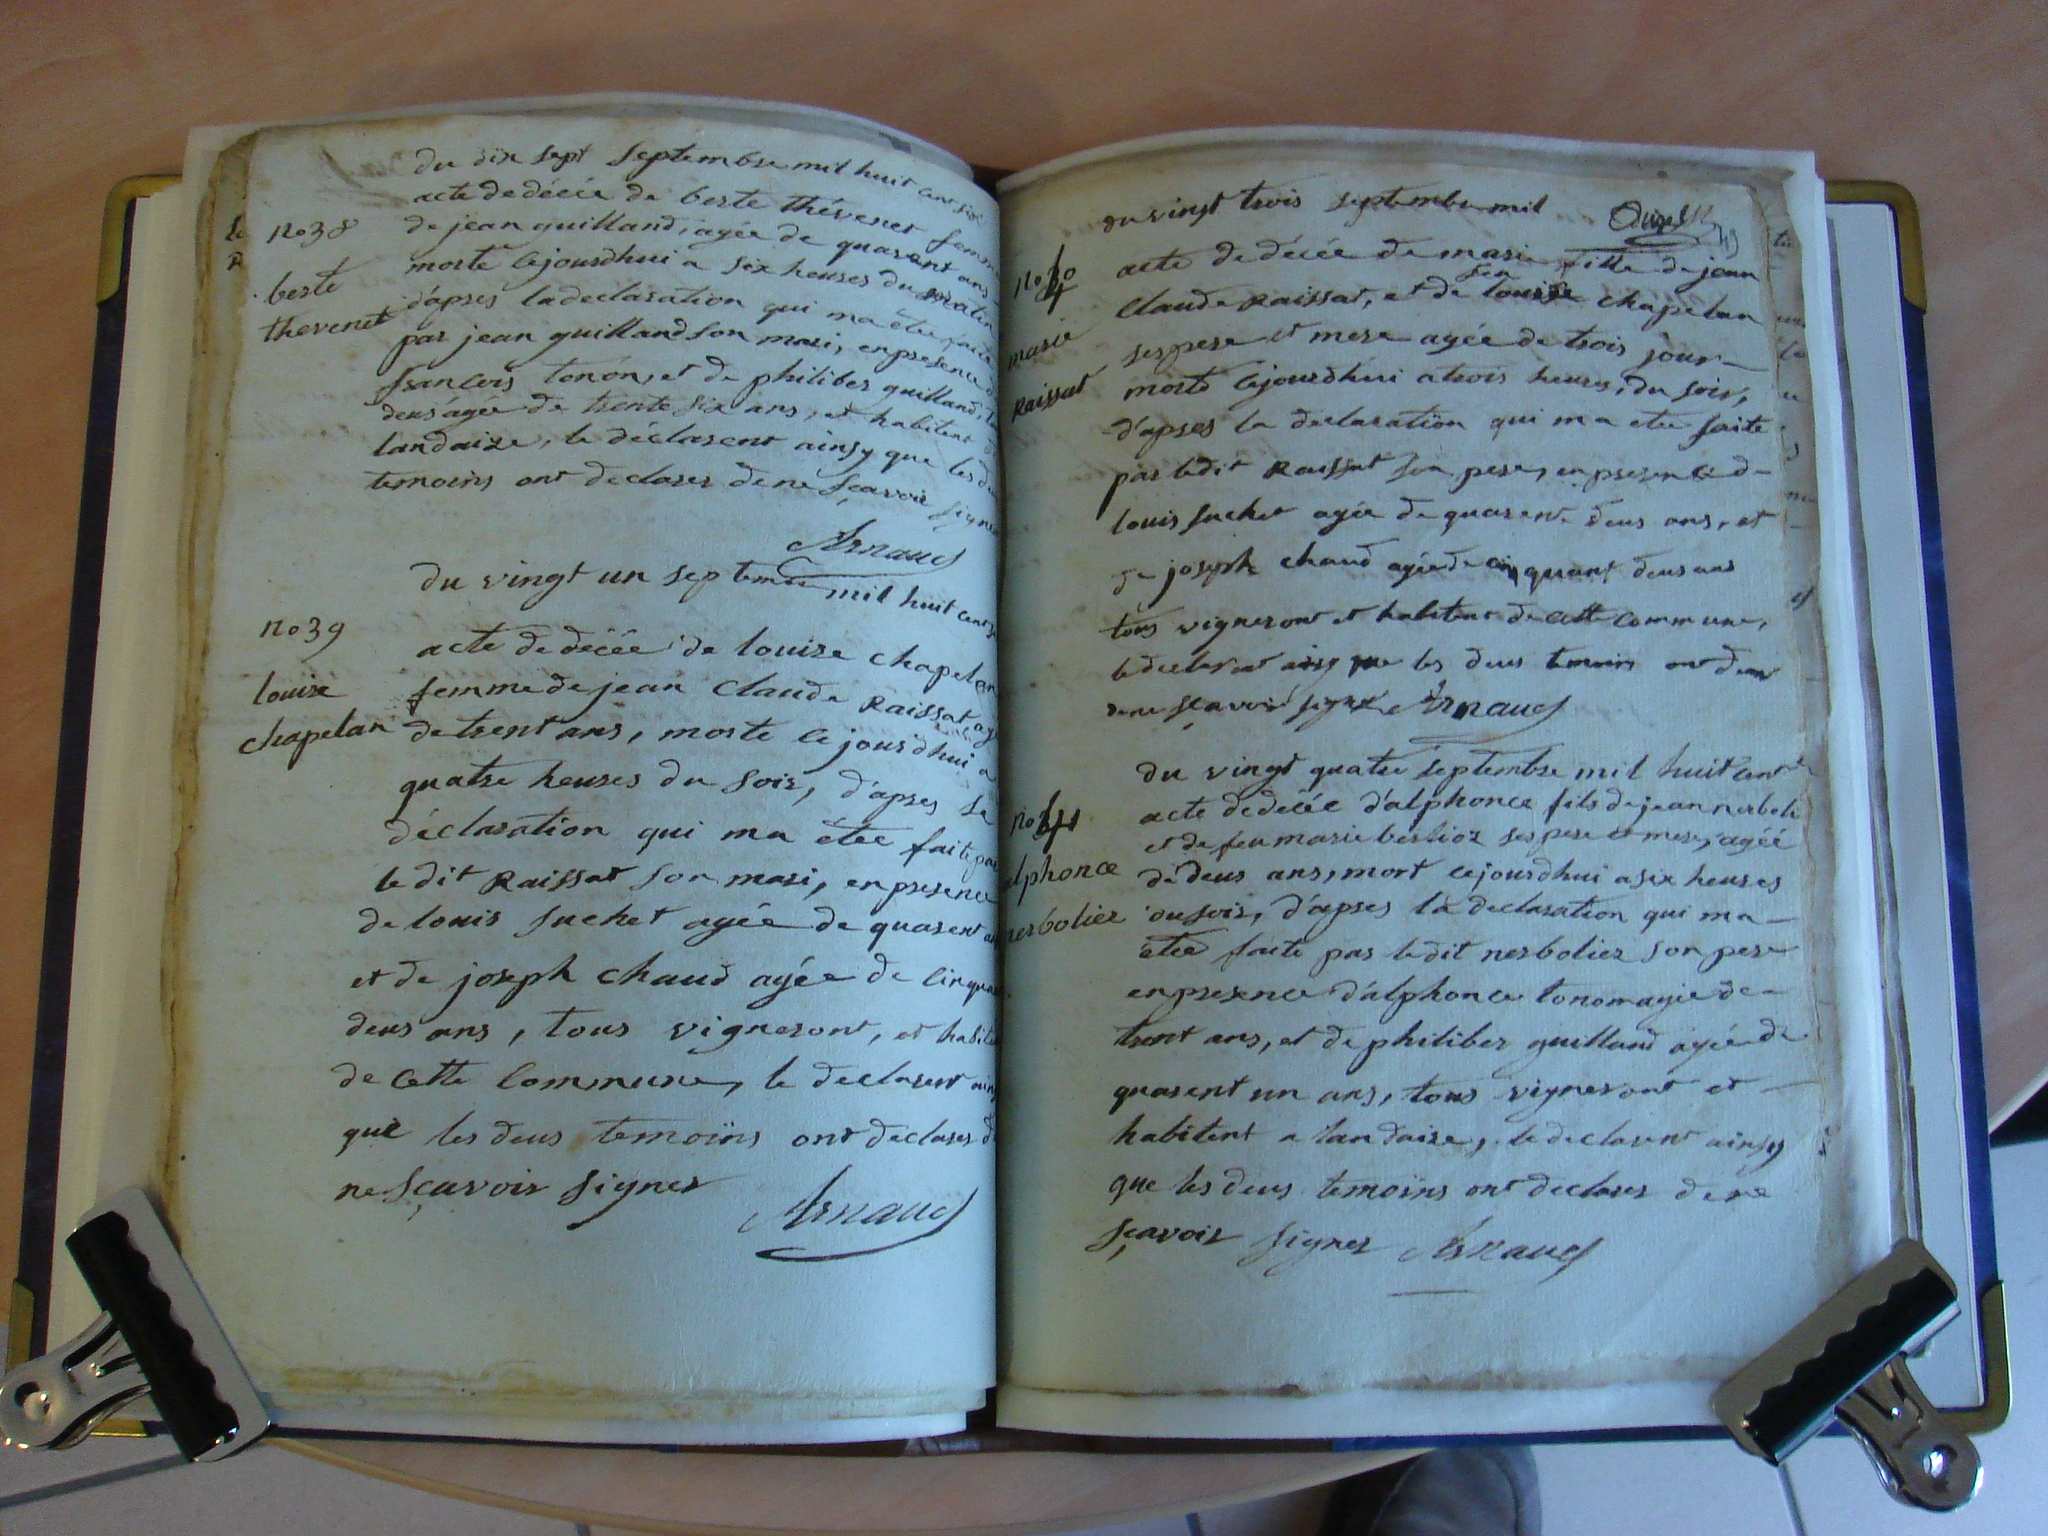 du dix sept septembre mil huit cent six
acte de décée de beste thévenet femme
no 38
de jean guilland, agée de quarent ans
morte cejourdhui a six heures du matin
beste
thevenet
d'apres la declaration qui ma etee faite
par jean guilland son mari, en presence de
francois tonon, et de philiber guilland,
deus agée de trente six ans, et habitent
landaize, le déclarent ainsy que les deus
temoins ont declarer de ne sçavoir signer
Arnaud
du vingt un septembre mil huit cent
no 39
acte de décée de louize chapelan
louize
chapelan
femme de jean claude Raissat agée
de trent ans, morte cejourdhui a
quatre heuses du soir, d'apres la
déclaration qui ma étee faite par
le dit Raissat son mari, en presence
de louis suchet agée de quarent
et de joseph chaud agée de cinquan
deus ans, tous vigneront, et habite
de cette commune, le declarent ainsy
que les deus temoïns ont declarer de
ne sçavoir signer
Arnaud
du vingt trois septembre mil
no 40
acte de décée de marie fille de jean
feu
claude Raissat, et de louise chapelan
marie
Raissat
ses pere et mere agée de trois jour
morte cejourdhui a trois heures, du soir,
d'apres la declaration qui ma etee faite
par ledit Raissat son pere, en presence de
louis suchet agée de quarent deus ans, et
de joseph chaud agée de cinquant deus ans
tous vigneront et habitent de cette commune,
le declarent ainsy que les deus temoin ont
de ne sçavoir signer Arnaud
du vingt quatre septembre mil huit cent
no 41
acte de décée d'alphonce fils de jean nerbolie
et de feu marie berlioz ses pere et mere, agée
alphonce
nerboliez
de deus ans, mort cejourdhui a six heures
du soir, d'apres la declaration qui ma
etee faite par le dit nerboliez son pere
en presence d'alphonce tonom agée de
trent ans, et de philiber guilland agée de
quarent un ans, tous vigneront et
habitent a landaize, le declarent ainsy
que les deus temoïns ont declarer de ne
sçavoir signer Arnaud